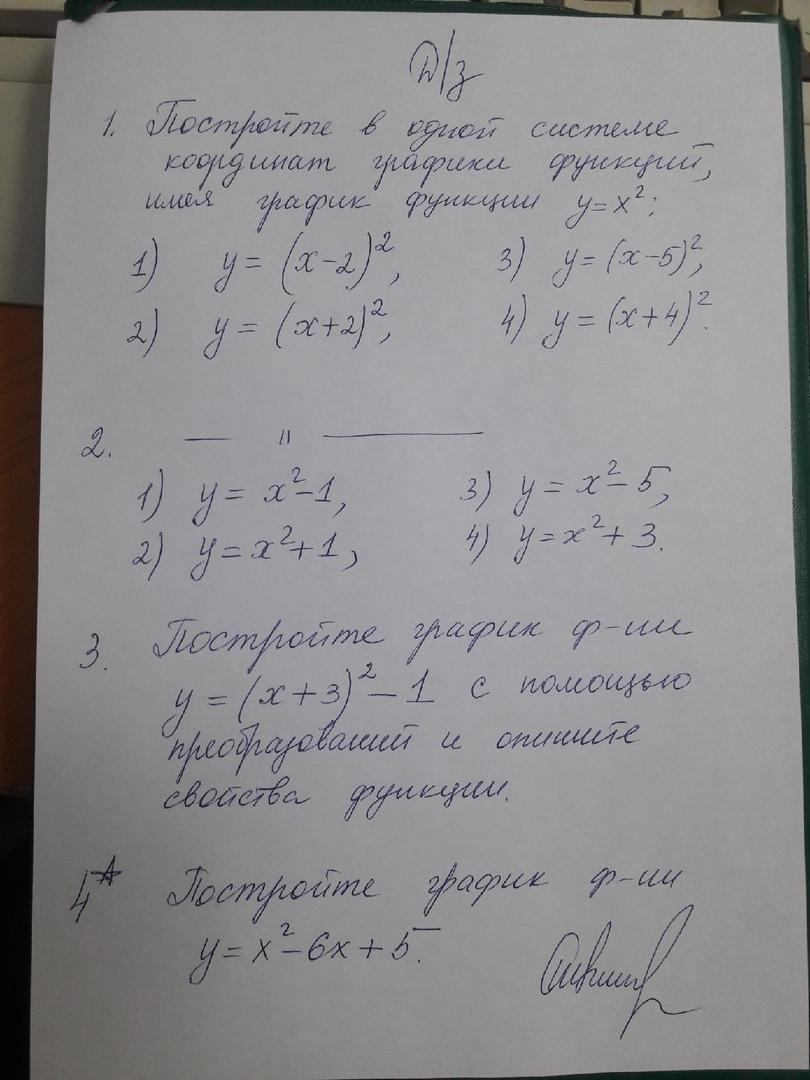 Д/з
1. Постройте в одной системе
координат графики функций,
имея график функции y=x²:
1) y=(x-2)², 3) y=(x-5)²,
2) y=(x+2)², 4) y=(x+4)².
2. — " —
1) y=x²-1, 3) y=x²-5,
2) y=x²+1, 4) y=x²+3.
3. Постройте график ф-ии
y=(x+3)²-1 с помощью
преобразований и опишите
свойства функции.
4* Постройте график ф-ии
y=x²-6x+5.